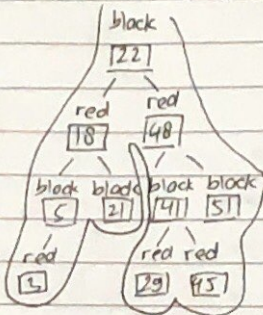 black
22
red red
18 48
black black black black
5 21 41 51
red red red
3 29 45